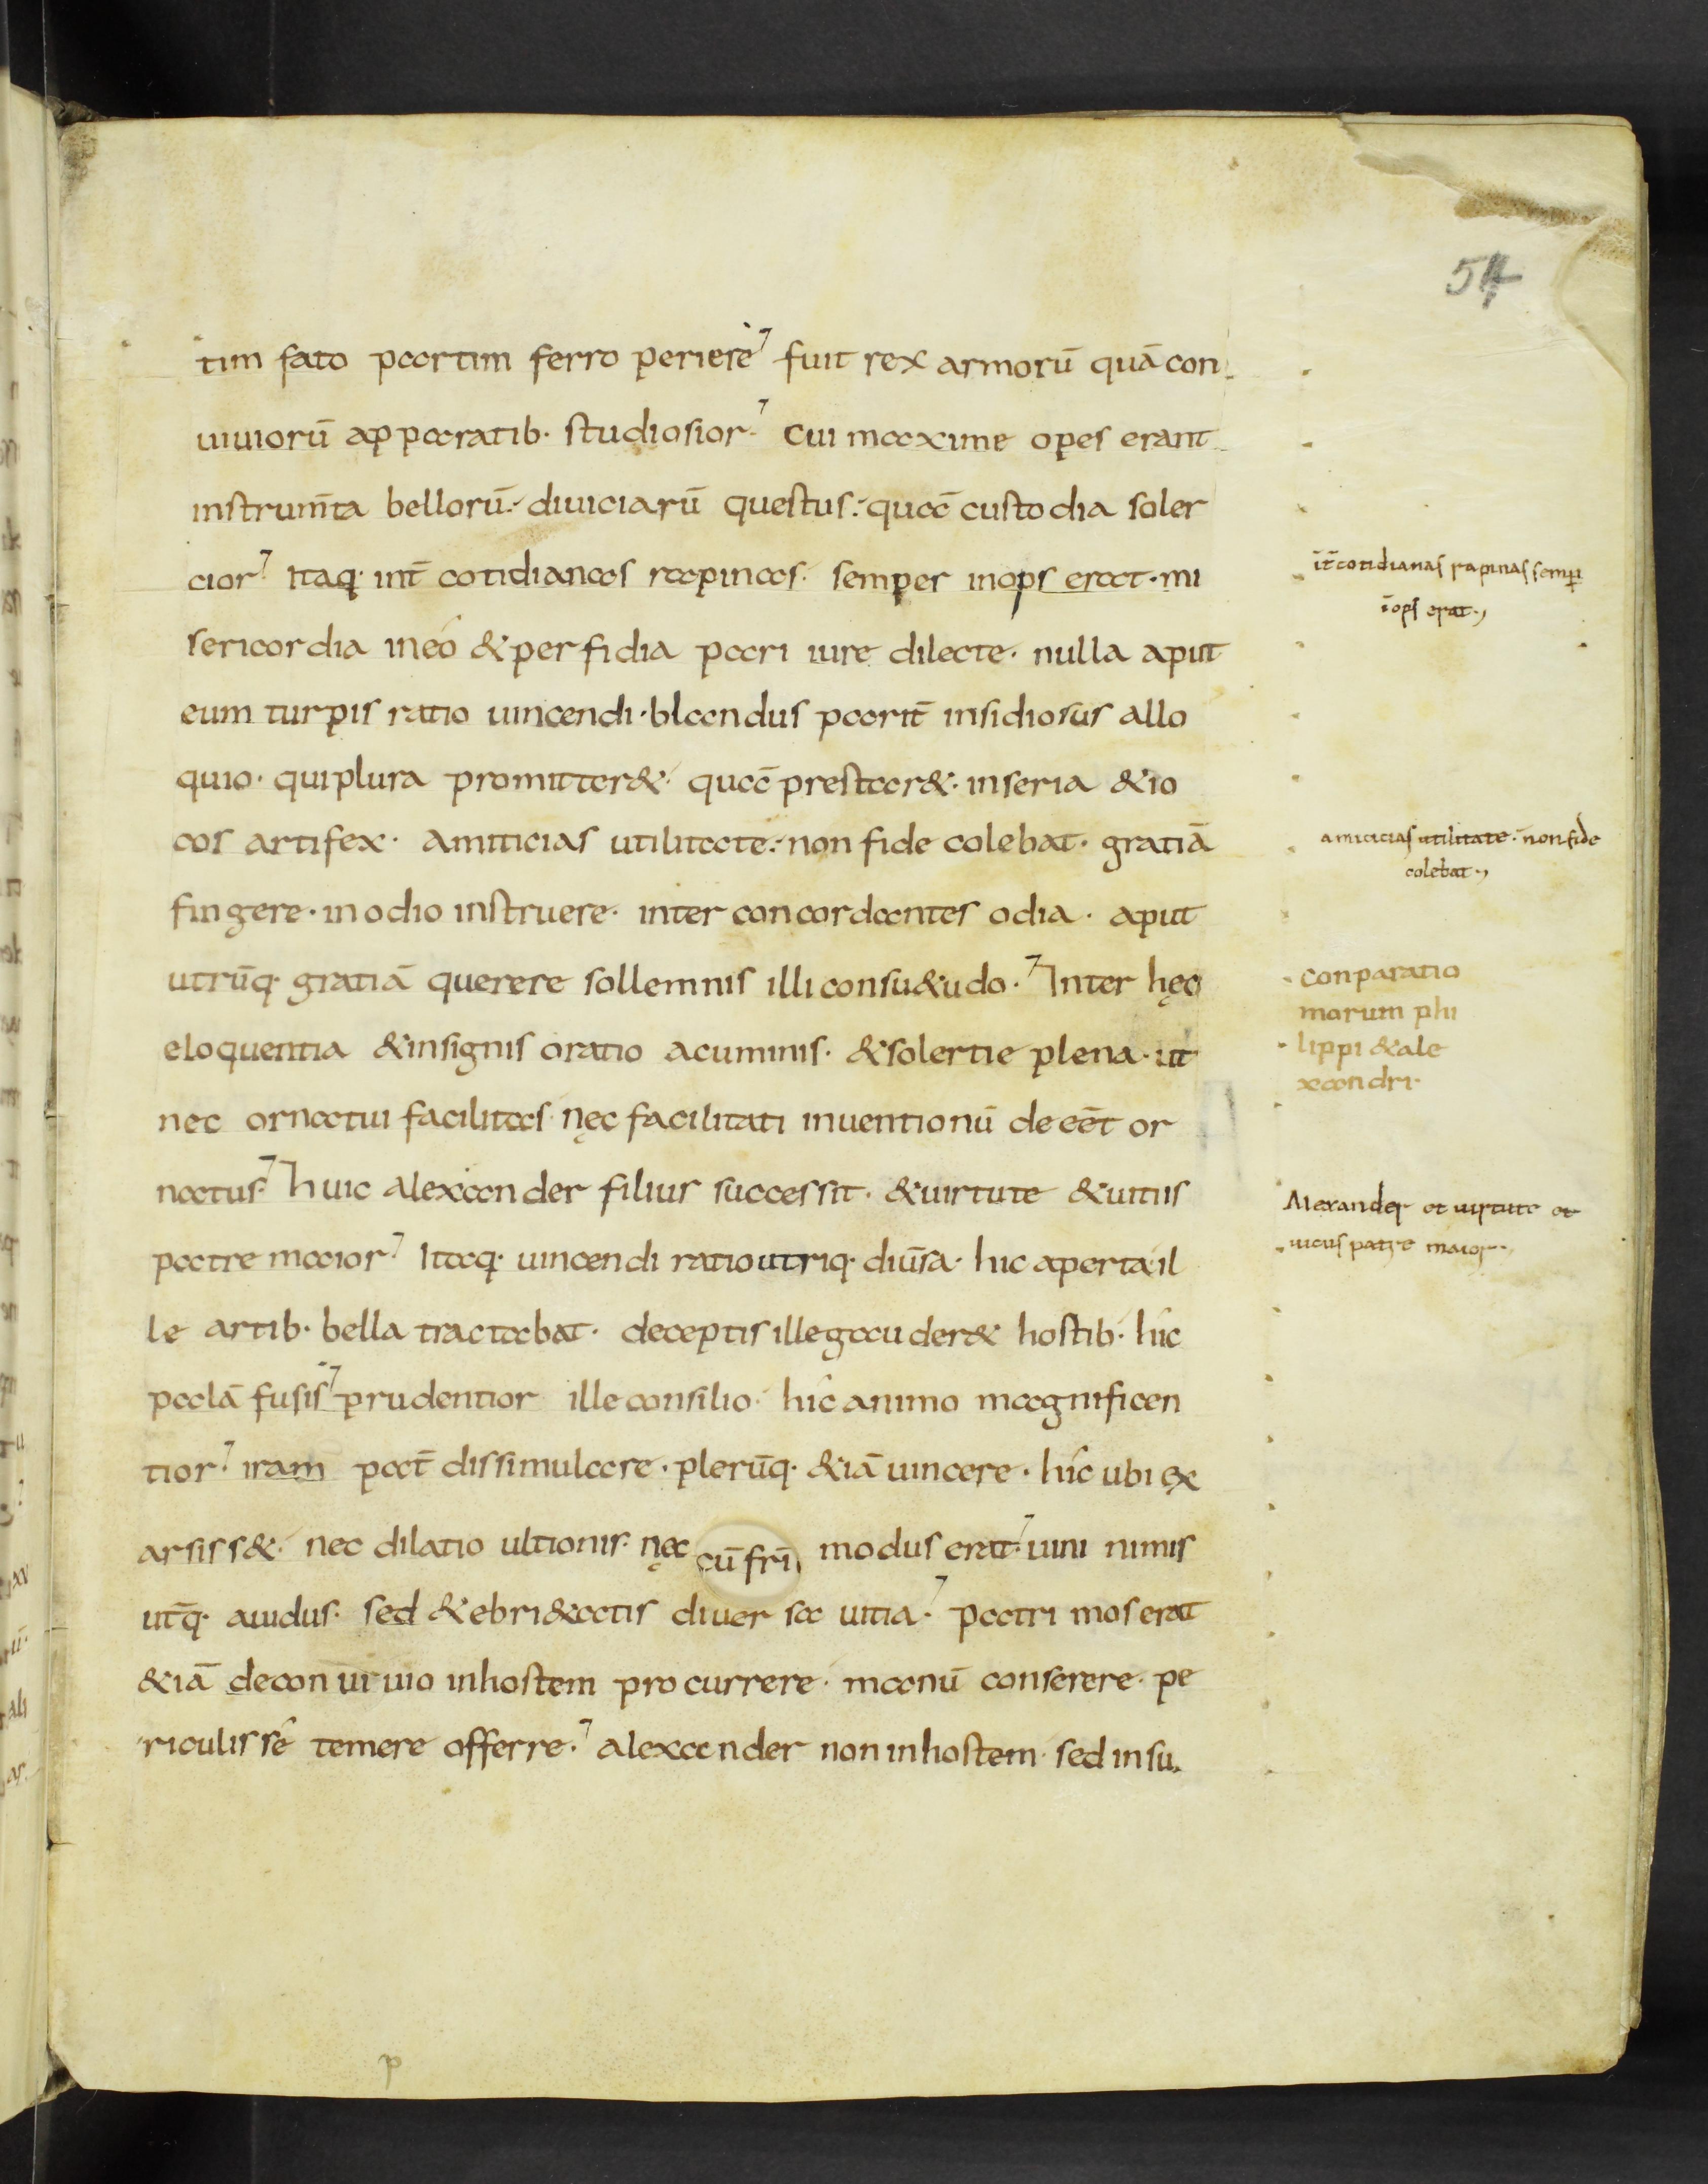 54
tim fato partim ferro periere fuit rex armorū quā con
uiuiorū apparatib· studiosior· cui maxime opes erant
instrum̄ta bellorū· diuiciarū questus· quā custodia soler
cior· Itaq· int̄ cotidianas rapinas· semper inops erat· mi
sericordia ineo & perfidia pari iure dilecte· nulla aput
eum turpis ratio uincendi· blandus parit̄ insidiosus allo
quio· qui plura promitter&· quā prestar&· inseria & io
cos artifex· amiticias utilitate· non fide colebat· gratiā
fingere· in odio instruere· inter concordantes odia· aput
utrūq· gratiā querere sollemnis illi consu&udo· Inter hęc
eloquentia & insignis oratio acuminis· & solertie plena· ut
nec ornatui facilitas· nęc facilitati inuentionū deeēt or
natus· huic alexander filius successit· & uirtute & uitiis
patre maior· Itaq· uincendi ratio utriq· diūsa· hic aperta il
le artib· bella tractabat· deceptis ille gauder& hostib· hic
palā fusis prudentior ille consilio· hic animo magnificen
tior· iram pat̄ dissimulare· plerūq· &iā uincere· hic ubi ex
arsiss&· nec dilatio ultionis· nęc cū frī modus erat· uini nimis
ut̄q· auidus· sed & ebri&atis diuersa uitia· patri mos erat
&iā deconuiuio inhostem procurrere· manū conserere· pe
riculis sé temere offerre· alexander non inhostem· sed insu
īt̄ cotidianas rapinas semp̄
īops erat·,
amicicias utilitate· non fide
colebat·,
conparatio
morum phi
lippi & ale
xandri·
Alexander et uirtute et
uicus patre maior·,
p